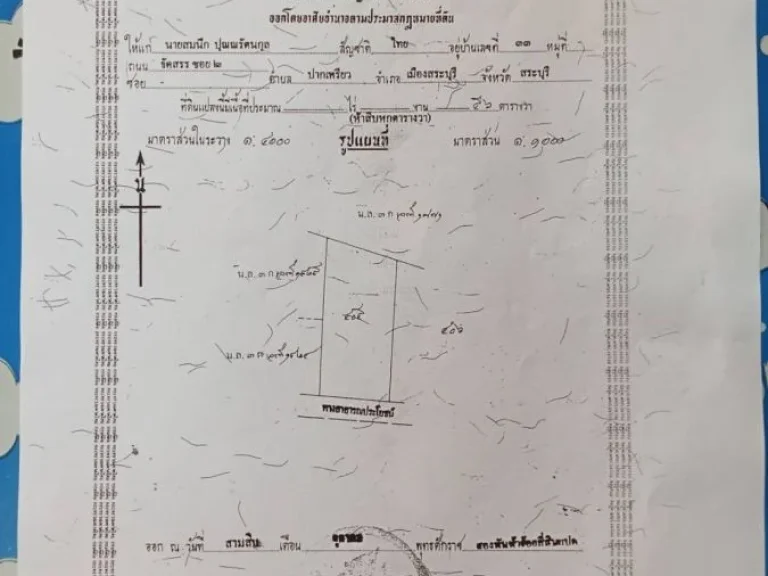 ออกโดยอาศัยอำนาจตามประมวลกฎหมายที่ดิน
ให้แก่ นายสมนึก ปุณณรัตนกุล สัญชาติ ไทย อยู่บ้านเลขที่ ๓๓ หมู่ที่
ถนน จัดสรร ซอย ๒
ซอย - ตำบล ปากเพรียว อำเภอ เมืองสระบุรี จังหวัด สระบุรี
ที่ดินแปลงนี้มีเนื้อที่ประมาณ ไร่ งาน ๕๖ ตารางวา
(ห้าสิบหกตารางวา)
มาตราส่วนในระวาง ๑: ๔๐๐๐ รูปแผนที่ มาตราส่วน ๑: ๑๐๐๐
น
น.ส. ๓ ก เลขที่
น.ส. ๓ ก เลขที่
๔๐๕
๔๐๖
น.ส. ๓ ก เลขที่
ทางสาธารณประโยชน์
ออก ณ วันที่ สามสิบ เดือน ตุลาคม พุทธศักราช สองพันห้าร้อยสี่สิบแปด